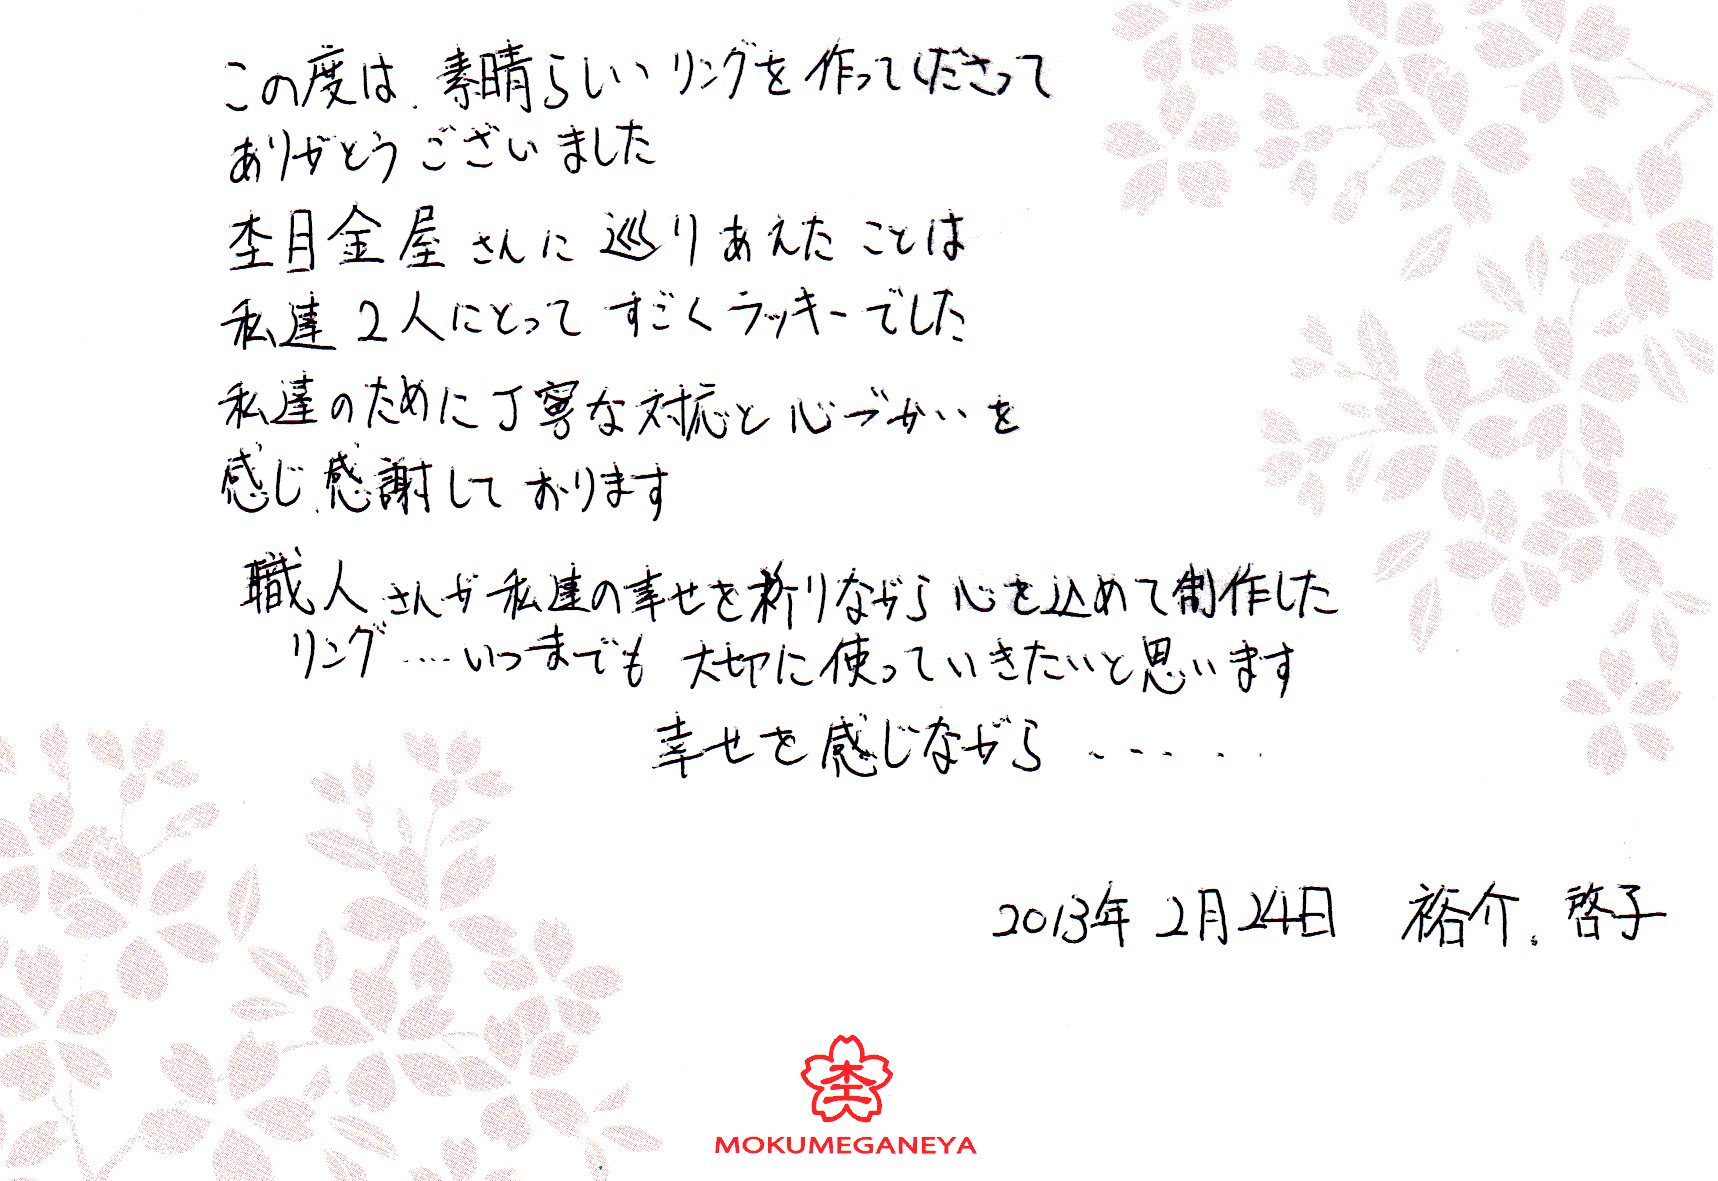 この度は、素晴らしいリングを作ってくださって
ありがとうございました
杢目金屋さんに巡りあえたことは
私達2人にとってすごくラッキーでした
私達のために丁寧な対応と心づかいを
感じ、感謝しております
職人さんが私達の幸せを祈りながら心を込めて制作した
リング……いつまでも大切に使っていきたいと思います
幸せを感じながら・・・・・
2013年2月24日 裕介、啓子
杢
MOKUMEGANEYA